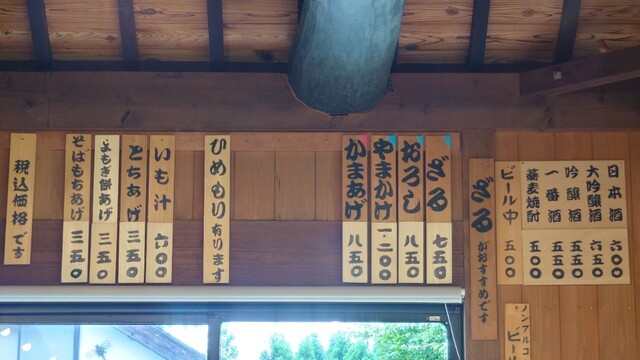 日本酒 五〇〇
大吟醸酒 六五〇
吟醸酒 五五〇
一番酒 五五〇
蕎麦焼酎 五〇〇
ビール中 五〇〇
ノンアルコ
ビール
ざるがおすすめです
ざる 七五〇
おろし 八五〇
やまかけ 一二〇〇
かまあげ 八五〇
ひめもり有ります
いも汁 六〇〇
とちあげ 三五〇
よもぎ餅あげ 三五〇
そばもちあげ 三五〇
税込価格です